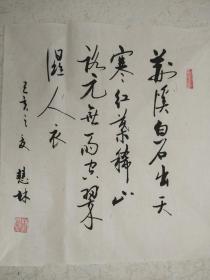 荆溪白石出天
寒红叶稀山
路元无雨空翠
湿人衣
己亥之夏 慧林